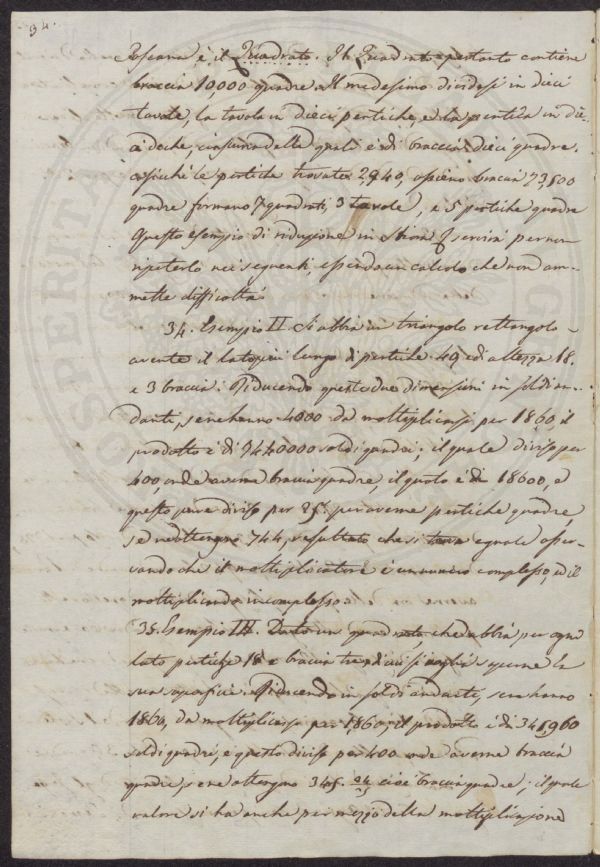 34.
Toscana è il Quadrato. Il Quadrato pertanto contiene
braccia 10,000 quadre. Il medesimo dividesi in dieci
tavole, la tavola in dieci pertiche, e la pertica in die-
ci deche, ciascuna delle quali è di braccia dieci quadre.
cosicché le pertiche trovate 2,940, ossieno braccia 73,500
quadre formano 7 quadrati, 3 tavole, e 5 pertiche quadre
Questo esempio di riduzione in servirà per non
ripeterlo nei seguenti essendo un calcolo che non am-
mette difficoltà.
34. Esempio II. Si abbia un triangolo rettangolo
avente il lato più lungo di pertiche 40, ed altezza 18.
e 3 braccia. Riducendo queste due dimensioni in soldi an-
danti, se ne hanno 4000 da moltiplicarsi per 1860, il
prodotto è di 7440000 soldi quadri; il quale diviso per
400, onde averne braccia quadre, il quoto è di 18600, e
questo pure diviso per 25. per averne pertiche quadre,
se ne ottengono 744, resultato che si trova eguale osser-
vando che il moltiplicatore è un numero complesso, ed il
moltiplicando incomplesso.
35. Esempio III. Dato un quadrato, che abbia per ogni
lato pertiche 18 e braccia tre di cui si voglia saperne la
sua superficie. Riducendo in soldi andanti, se ne hanno
1860, da moltiplicarsi per 1860, il prodotto è di 345,960
soldi quadri, e questo diviso per 400 onde averne braccia
quadre, se ne ottengono cioè braccia quadre; il quale
valore si ha anche per mezzo della moltiplicazione